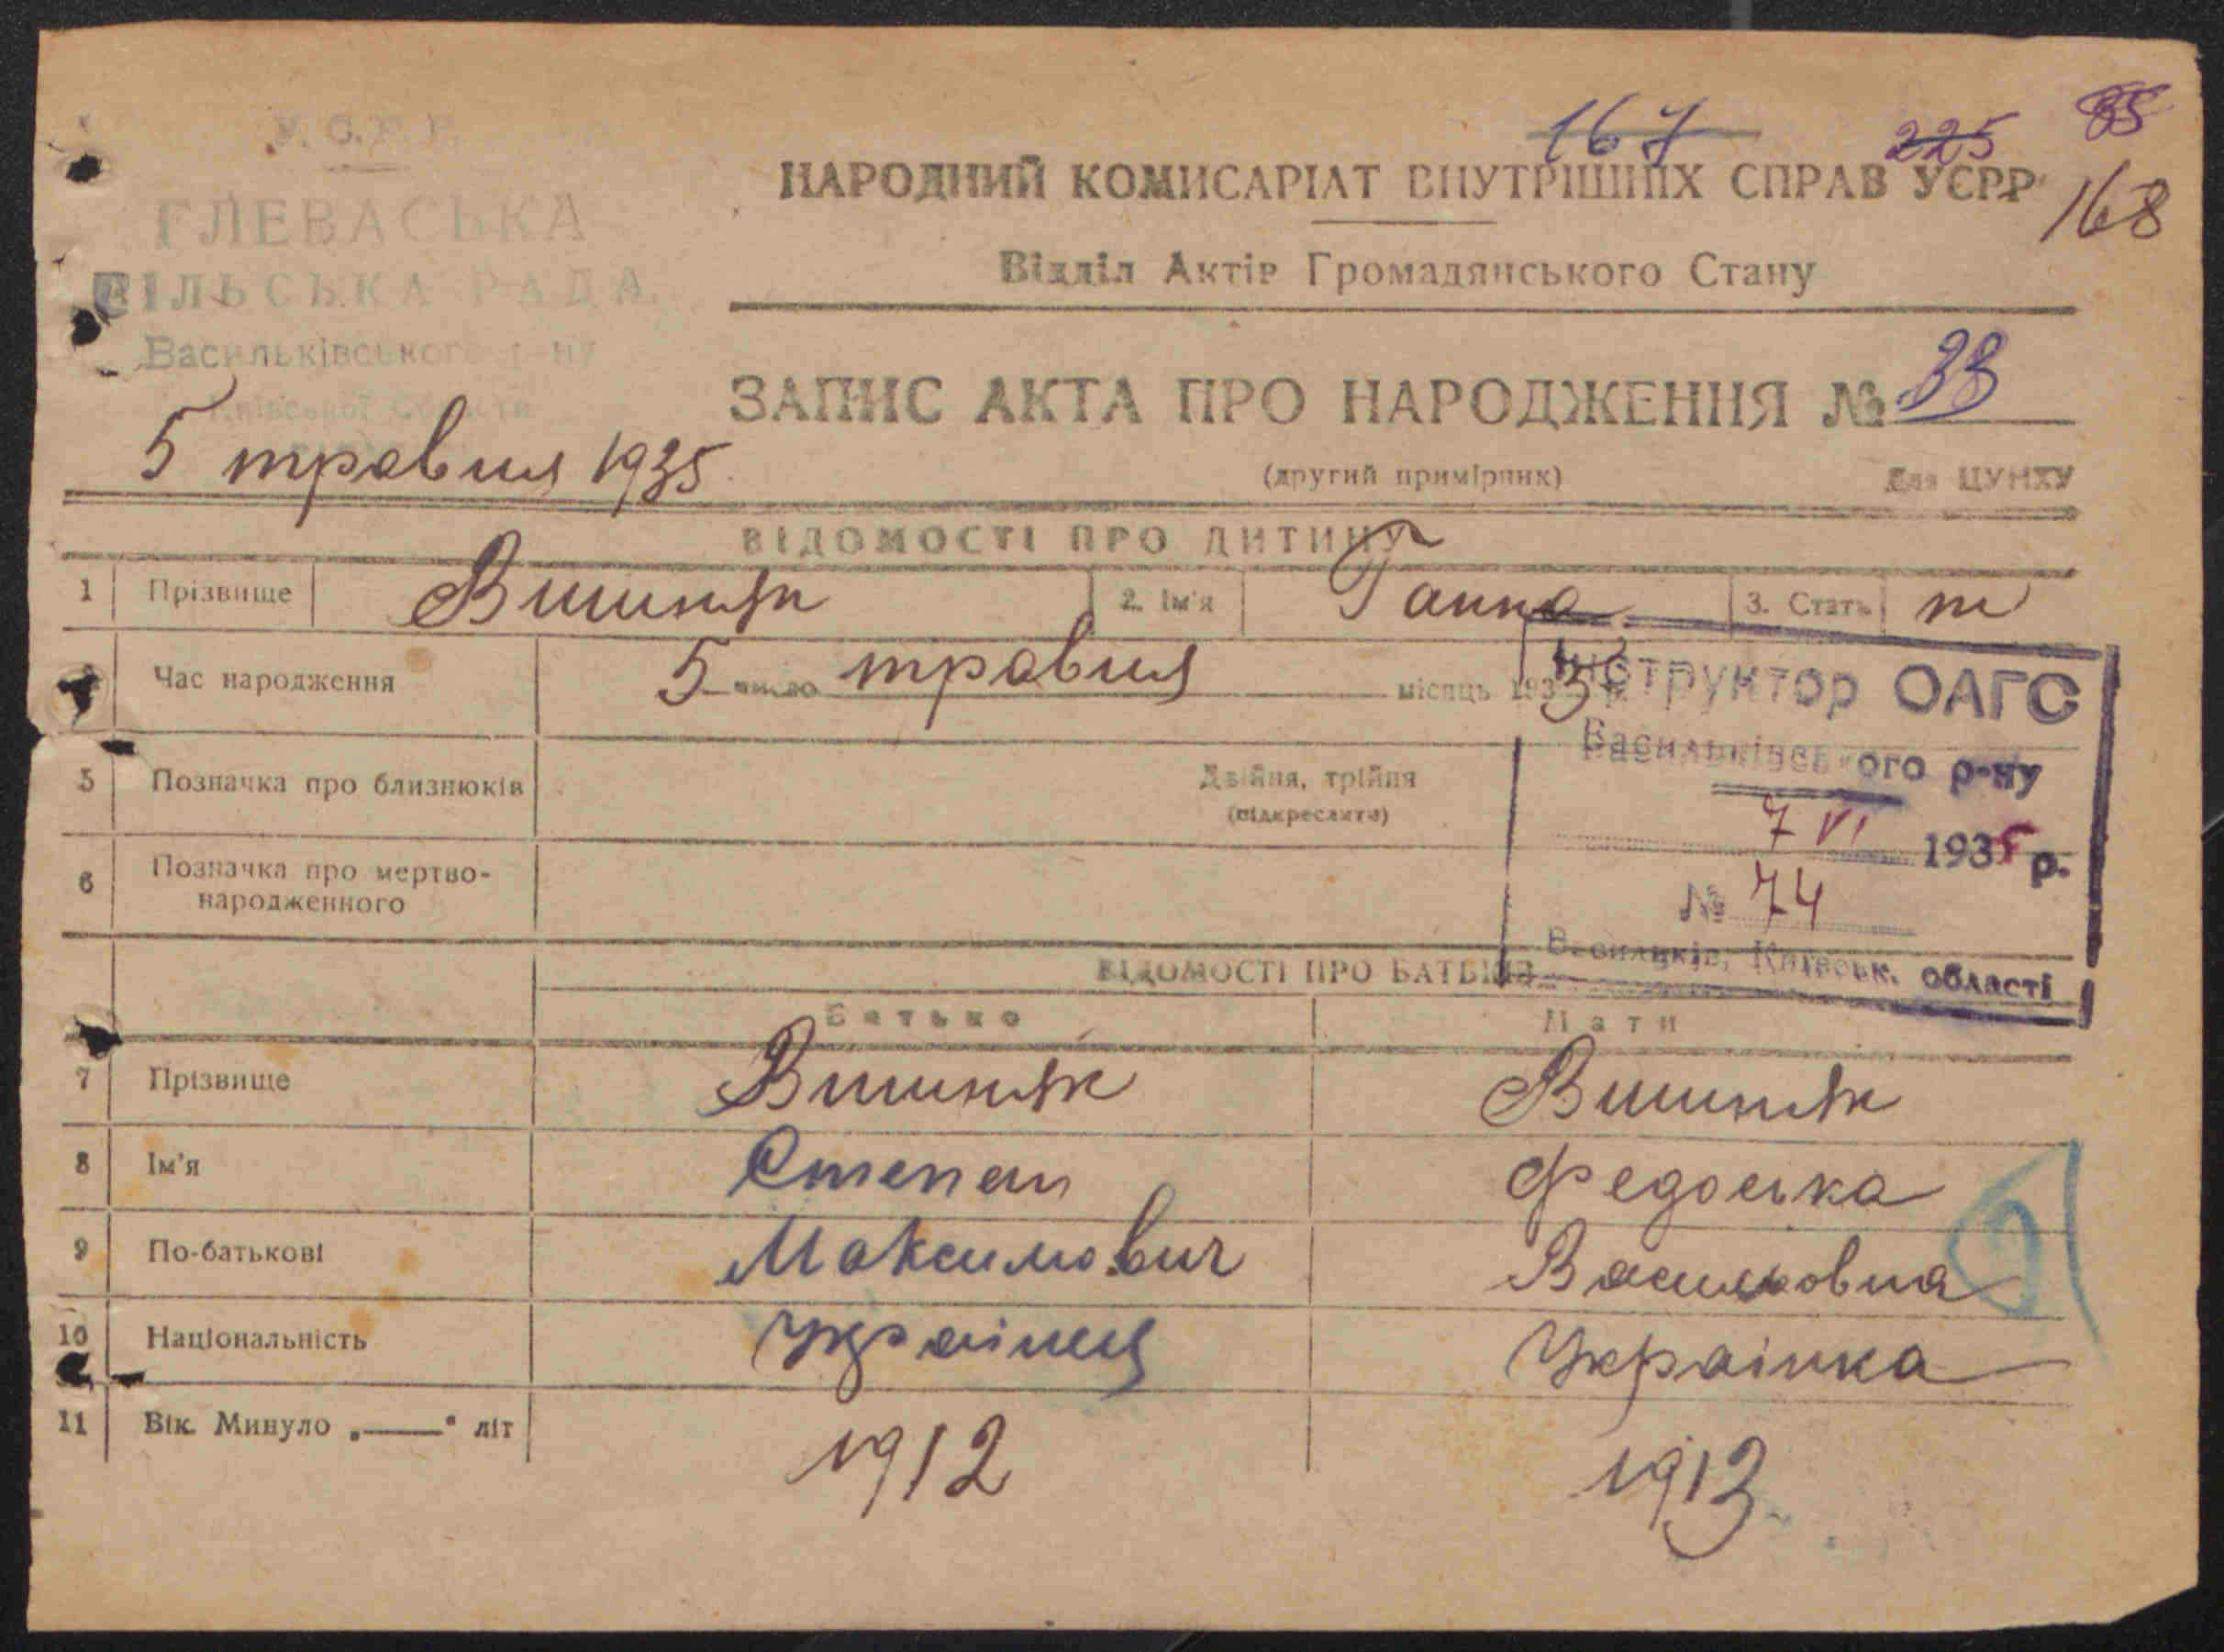 У.С.Р.Р.
ГЛЕВАСЬКА
СІЛЬСЬКА РАДА
Васильківського р-ну
Київської Области
5 травня 1935
167
225
85
168
НАРОДНИЙ КОМИСАРІАТ ВНУТРІШНІХ СПРАВ УСРР
Відділ Актів Громадянського Стану
ЗАПИС АКТА ПРО НАРОДЖЕННЯ № 33
(другий примірник)
Для ЦУНХУ
ВІДОМОСТІ ПРО ДИТИНУ
1 Прізвище Вишняк 2. Ім'я Ганна 3. Стать
Час народження 5 число травня місяць 1935 р.
5 Позначка про близнюків Двійня, трійня
(підкреслити)
6 Позначка про мертво-
народженного
Інструктор ОАГС
Васильківського р-ну
7 VI 1935 р.
№ 74
Васильків, Київськ. області
ВІДОМОСТІ ПРО БАТЬКІВ
Батько Мати
7 Прізвище Вишняк Вишняк
8 Ім'я Степан Федоська
9 По-батькові Максимович Васильовна
10 Національність Українец Українка
11 Вік. Минуло „——“ літ 1912 1913